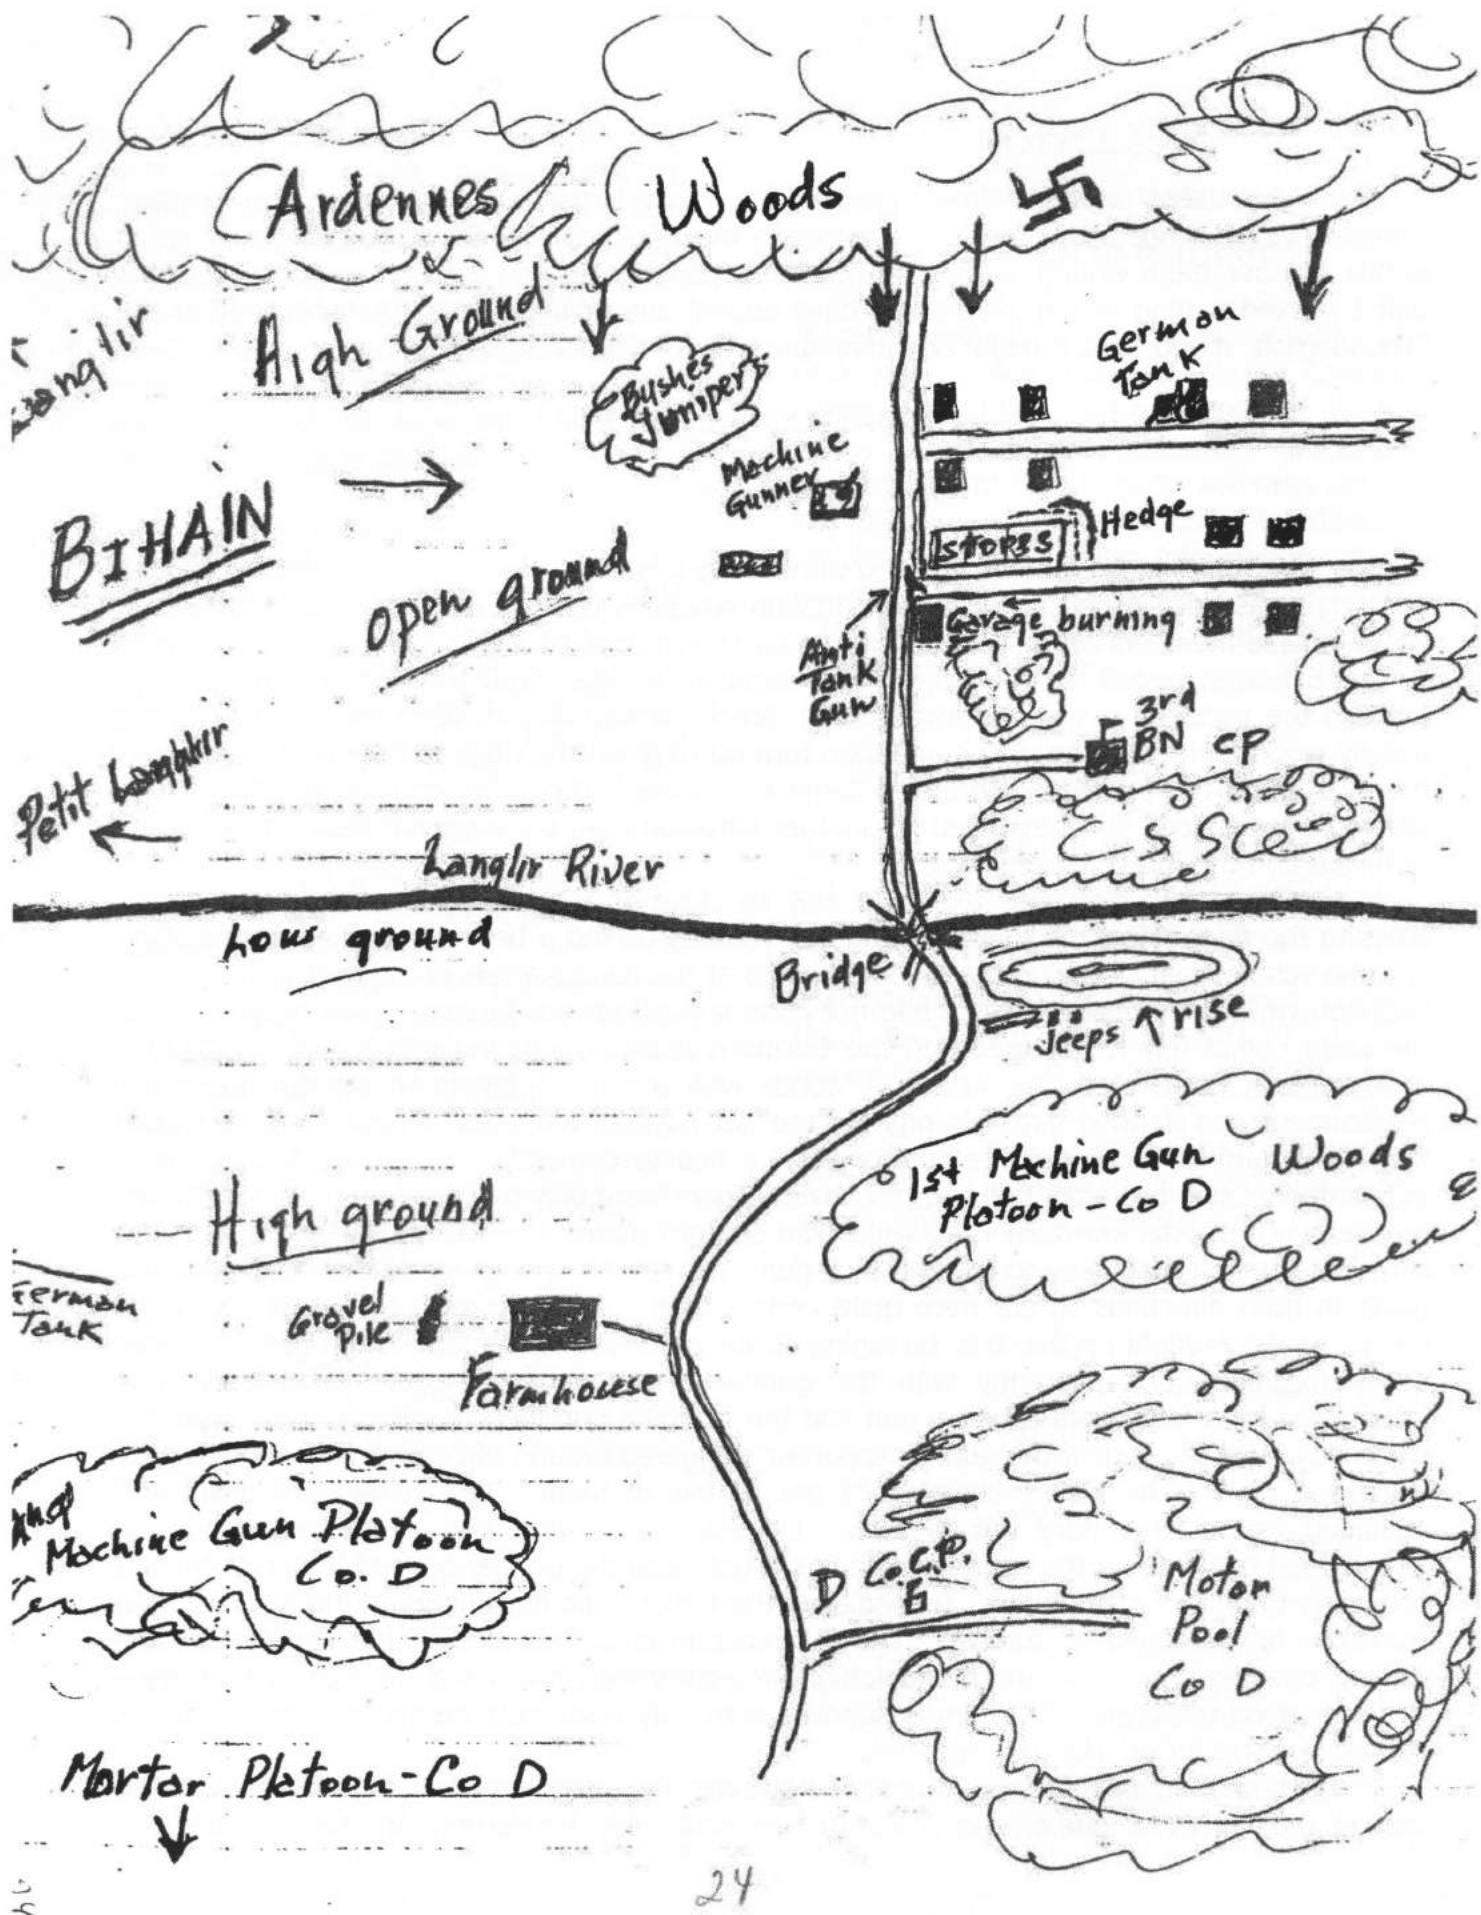 Ardennes Woods
High Ground
Bushes
Juniper
German
Tank
Machine
Gunner
BIHAIN
Open ground
Hedge
STORES
Garage burning
Anti
Tank
Gun
3rd
BN CP
Petit Langlir
Langlir River
Low ground
Bridge
Jeeps
rise
1st Machine Gun
Platoon - Co D
Woods
High ground
German
Tank
Gravel
Pile
Farmhouse
Machine Gun Platoon
Co. D
D Co. C.P.
Motor
Pool
Co D
Mortar Platoon - Co D
24